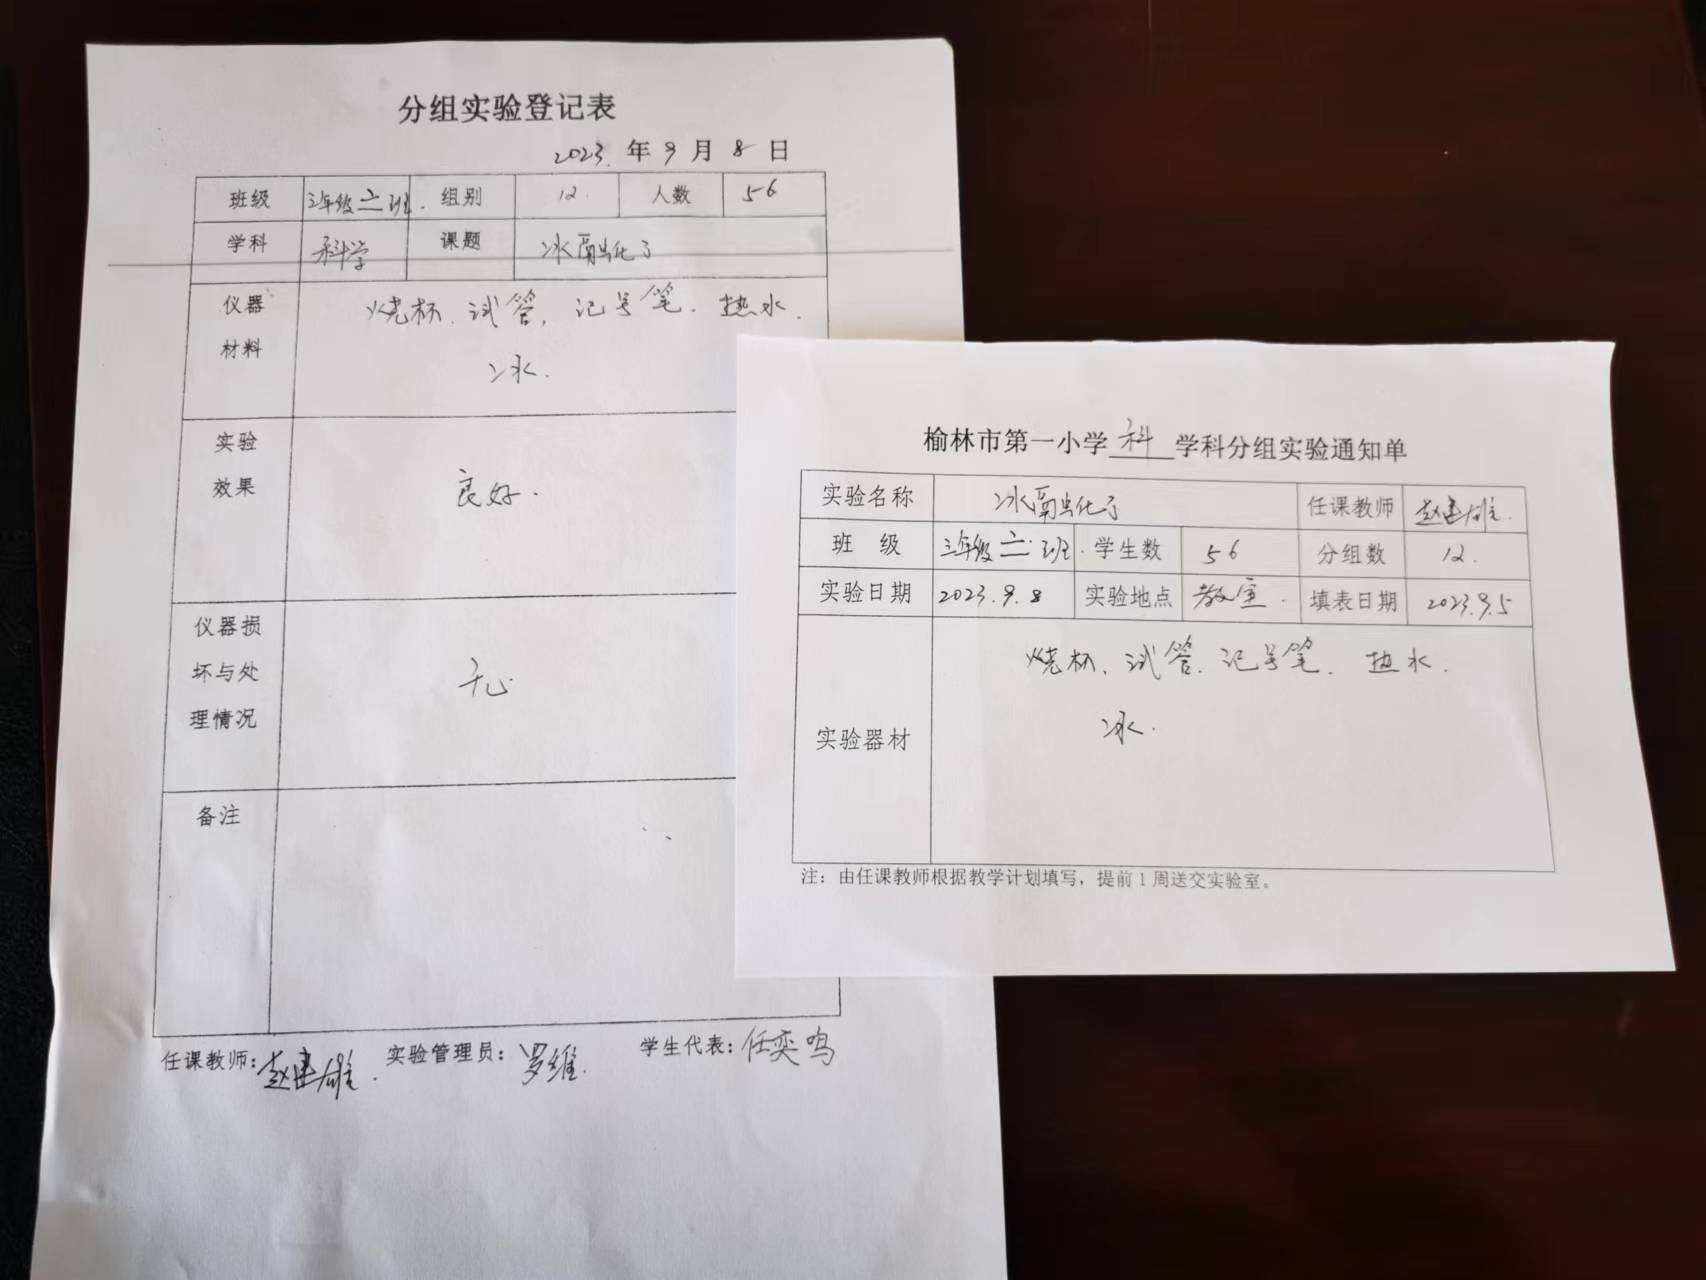 分组实验登记表
2023 年 9 月 8 日
班级 三年级六班. 组别 12. 人数 56
学科 科学 课题 冰融化了
仪器 烧杯、试管、记号笔、热水、
材料 冰.
实验
效果 良好.
仪器损
坏与处 无.
理情况
备注
任课教师: 赵建雄. 实验管理员: 罗维. 学生代表: 任奕鸣
榆林市第一小学 科 学科分组实验通知单
实验名称 冰融化了 任课教师 赵建雄.
班 级 三年级六班. 学生数 56 分组数 12.
实验日期 2023.9.8 实验地点 教室. 填表日期 2023.9.5
烧杯、试管、记号笔、热水.
实验器材 冰.
注：由任课教师根据教学计划填写，提前 1 周送交实验室。